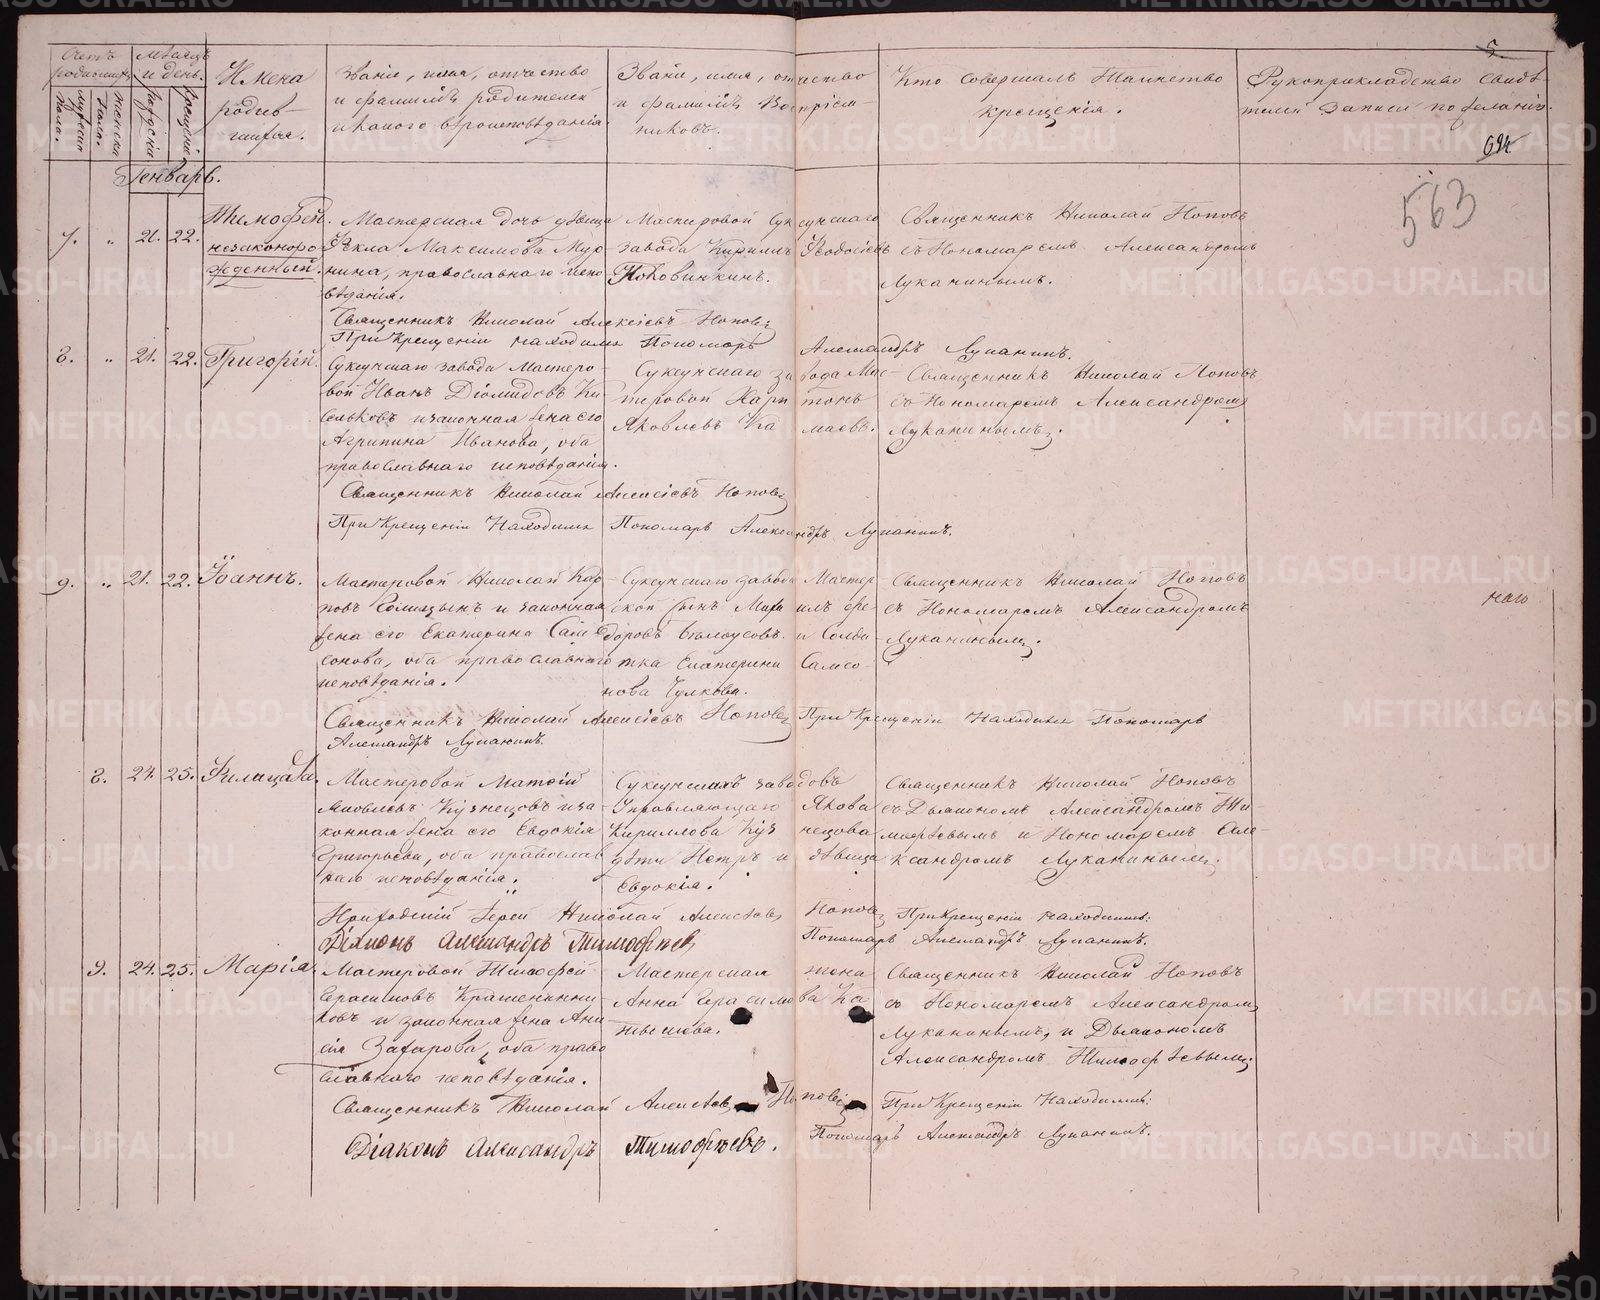 5.
694
563
Счетъ родившихся
мужеска пола.
женска пола.
Мѣсяцъ и день.
рожденія
крещенія
Имена родив-
шихся.
Званіе, имя, отчество
и фамилія родителей
и какого вѣроисповѣданія.
Званіе, имя, отчество
и фамилія Воспріем-
никовъ.
Кто совершалъ Таинство
крещенія.
Рукоприкладство свидѣ-
телей записи по желанію.
Генварь.
7. " 21. 22.
Тимофей.
незаконоро-
жденный.
Мастерская дочь дѣвица
Ѳекла Максимова
православнаго испо-
вѣданія.
Мастеровой Суксунскаго
завода Кириллъ Ѳеодосіевъ
Половинкинъ.
Священникъ Николай Поповъ
съ Пономаремъ Александромъ
Луканинымъ.
Священникъ Николай Алексіевъ Поповъ
При Крещеніи находился Пономарь Александръ Луканинъ.
8. " 21. 22.
Григорій.
Суксунскаго завода Мастеро-
вой Иванъ Діомидовъ Ки-
сельковъ и законная жена его
Агрипина Иванова, оба
православнаго исповѣданія.
Суксунскаго завода Мас-
теровой Харитонъ
Яковлевъ
Священникъ Николай Поповъ
съ Пономаремъ Александромъ
Луканинымъ.
Священникъ Николай Алексіевъ Поповъ
При Крещеніи Находился Пономарь Александръ Луканинъ.
9. " 21. 22.
Іоаннъ.
Мастеровой Николай Кар-
повъ и законная
жена его Екатерина Сам-
сонова, оба православнаго
исповѣданія.
Суксунскаго завода Мастер-
ской сынъ
доровъ Бѣлоусовъ и Солда-
тка Екатерина Самсо-
нова Чулкова.
Священникъ Николай Поповъ
съ Пономаремъ Александромъ
Луканинымъ.
наго
Священникъ Николай Алексіевъ Поповъ При Крещеніи Находился Пономарь
Александръ Луканинъ.
8. 24. 25.
Филицата.
Мастеровой Матѳій
Яковлевъ Кузнецовъ и за-
конная жена его Евдокія
Григорьева, оба православ
наго исповѣданія.
Суксунскихъ заводовъ
Управляющаго Якова
Кириллова Кузнецова
дѣти Петръ и дѣвица
Евдокія.
Священникъ Николай Поповъ
съ Дьякономъ Александромъ Ти-
мофѣевымъ и Пономаремъ Але-
ксандромъ Луканинымъ.
Приходскій Іерей Николай Алексѣевъ Поповъ При Крещеніи находились:
Діаконъ Александръ Тимофѣевъ Пономарь Александръ Луканинъ.
9. 24. 25.
Марія.
Мастеровой Тимофей
Герасимовъ Крашенинни-
ковъ и законная жена Ани-
сія Захарова, оба право
славнаго исповѣданія.
Мастерская жена
Анна Герасимова
Священникъ Николай Поповъ
съ Пономаремъ Александромъ
Луканинымъ, и Дьякономъ
Александромъ Тимофѣевымъ.
Священникъ Николай Алексѣевъ Поповъ При Крещеніи Находились:
Діаконъ Александръ Тимофѣевъ. Пономарь Александръ Луканинъ.
METRIKI.GASO-URAL.RU